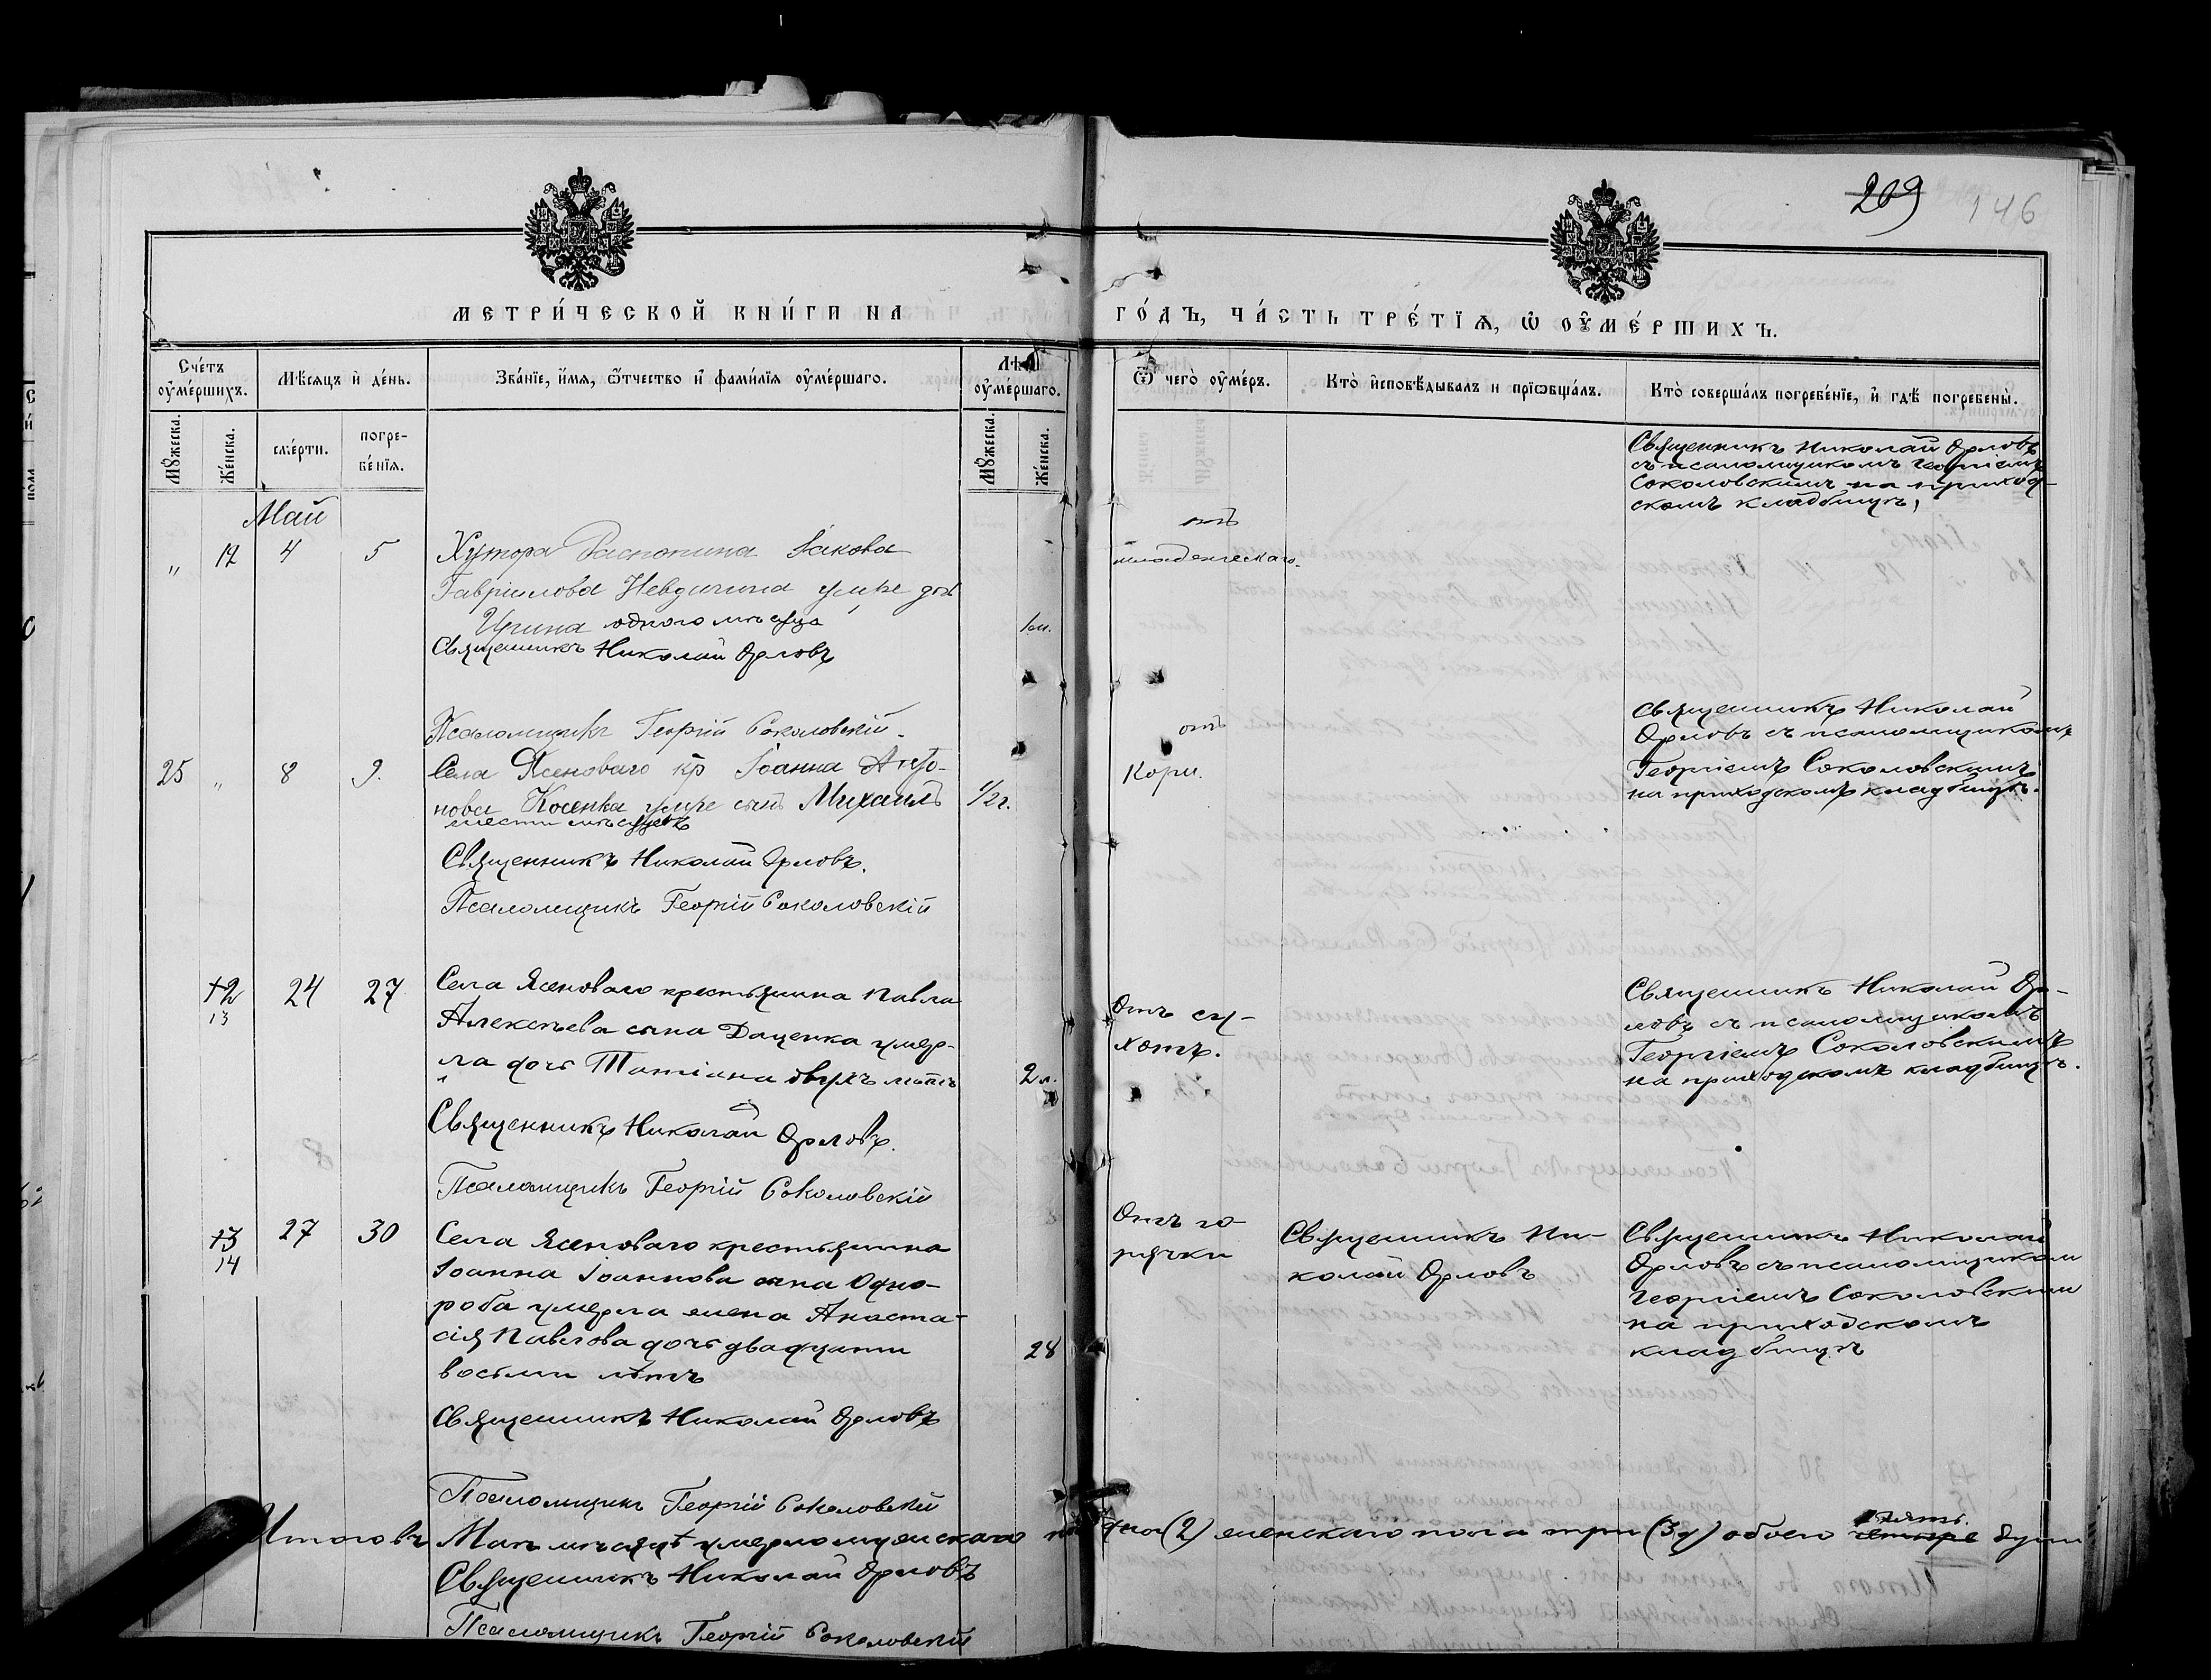 209 146
МЕТРИ́ЧЕСКОЙ КНИ́ГИ НА
ГО́ДЪ, ЧА́СТЬ ТРЕ́ТЇѦ, Ѡ҆ ОУ҆МЕ́РШИХЪ.
Сче́тъ оу҆ме́ршихъ.
Мѣ́сяцъ и҆ де́нь.
Зва́нїе, и҆́мя, ѻ҆́тчество и҆ фами́лїя оу҆ме́ршаго.
Лѣта оу҆ме́ршаго.
Ѿ чегѡ̀ оу҆ме́ръ.
Кто̀ и҆сповѣ́дывалъ и прїѡбща́лъ.
Кто̀ соверша́лъ погребе́нїе, и҆ гдѣ̀ погребены̀.
Мꙋ́жеска.
Же́нска.
сме́рти.
погре-
бе́нїя.
Мꙋ́жеска.
Же́нска.
Май
" 12 4 5
Хутора Распопина Іакова
Гавріилова Невдачина умре дочь
Ирина одного мѣсяца
1 м.
Священникъ Николай Орловъ
Псаломщикъ Георгій Соколовскій.
отъ
младенческаго.
Священникъ Николай Орловъ
съ псаломщикомъ Георгіемъ
Соколовскимъ на приход-
скомъ кладбищѣ,
25 " 8 9.
Села Ясеноваго кр Іоанна Анто-
нова Косенка умре сынъ Михаилъ
1/2 г.
шести мѣсяцевъ
Священникъ Николай Орловъ.
Псаломщикъ Георгій Соколовскій
отъ
Кори.
Священникъ Николай
Орловъ съ псаломщикомъ
Георгіемъ Соколовскимъ
на приходскомъ кладбищѣ.
12 24 27
13
Села Ясеноваго крестьянина Павла
Алексѣева сына Даценка умер-
ла дочь Татіана двухъ лѣтъ
2 л.
Священникъ Николай Орловъ.
Псаломщикъ Георгій Соколовскій
Отъ су-
хотъ.
Священникъ Николай Ор-
ловъ съ псаломщикомъ
Георгіемъ Соколовскимъ
на приходскомъ кладбищѣ.
13 27 30
14
Села Ясеноваго крестьянина
Іоанна Іоаннова сына Одно-
роба умерла жена Анаста-
сія Павлова дочь двадцати
28
восьми лѣтъ
Священникъ Николай Орловъ
Псаломщикъ Георгій Соколовскій
Отъ го-
рячки
Священникъ Ни-
колай Орловъ
Священникъ Николай
Орловъ съ псаломщиком
Георгіемъ Соколовским
на приходскомъ
кладбищѣ
пять.
Итого въ Маѣ мѣсяцѣ умерло мужескаго (2) женскаго пола три (3) обоего четыре души
Священникъ Николай Орловъ
Псаломщикъ Георгій Соколовскій